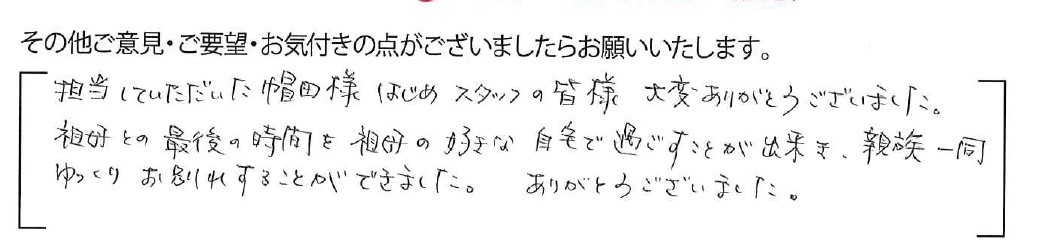 その他ご意見・ご要望・お気付きの点がございましたらお願いいたします。
担当していただいた帽田様 はじめ スタッフの皆様 大変ありがとうございました。
祖母との最後の時間を祖母の好きな 自宅で過ごすことが出来き、親族一同
ゆっくり お別れすることができました。 ありがとうございました。